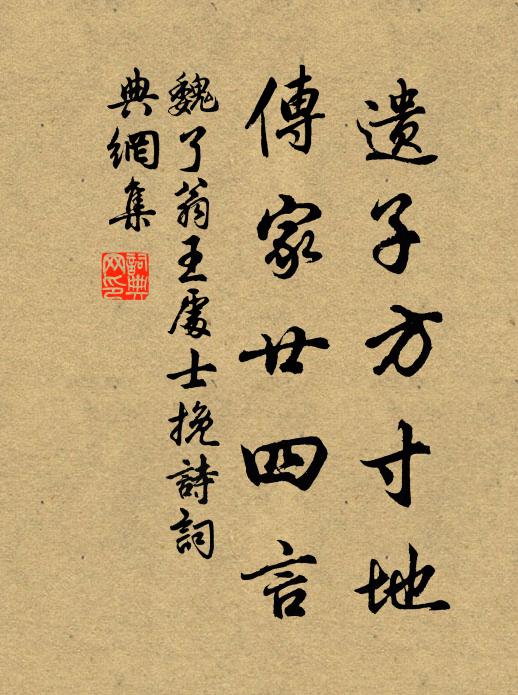 遺子方寸地
傳家廿四言
魏了翁王處士挽詩詞
典網集
詞典網印